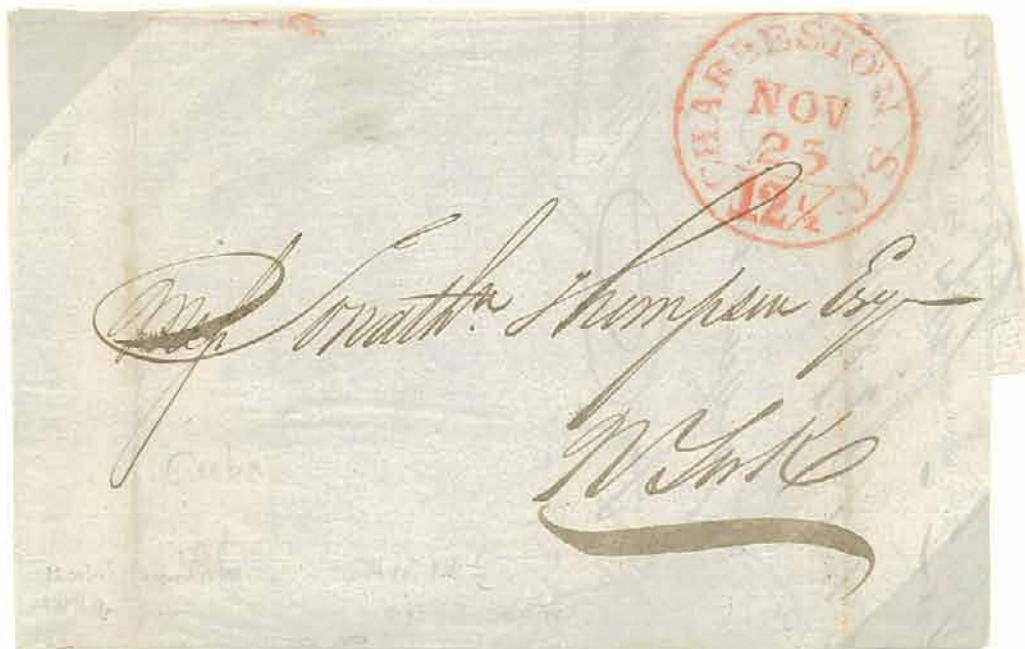 CHARLESTON S.C
NOV
25
12½
Jonath.ⁿ Thompson Esq
N York
Cuba